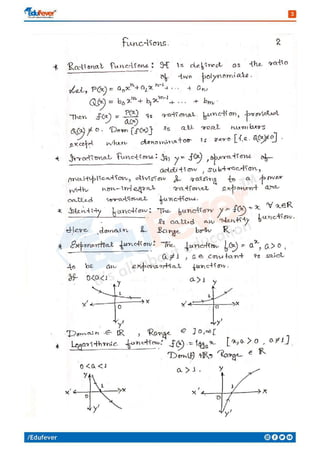 Edufever
3
Functions.
2
* Rational Functions: It is defined as the ratio
of two polynomials.
Let, P(x) = a₀xⁿ + a₁xⁿ⁻¹ + ... + aₙ,
Q(x) = b₀xᵐ + b₁xᵐ⁻¹ + ... + bₘ.
Then f(x) = P(x)/Q(x) is rational function, provided
Q(x) ≠ 0. Dom {f(x)} is all real numbers
except when denominator is zero [i.e. Q(x)≠0].
* Irrational Functions: In y = f(x), operations of
addition, subtraction,
multiplication, division & raising to a power
with non-integral rational exponent are
called irrational functions.
* Identity function: The function y = f(x) = x ∀ x∈R
is called an identity function.
Here, domain & Range both R
* Exponential function: The function f(x) = aˣ, a>0,
a≠1, is constant is said
to be an exponential function.
If 0<a<1
a>1
y
y
1
1
x'
0
x
x'
0
x
y'
y'
Domain ∈ R, Range ∈ ]0,∞[
* Logarithmic function: f(x) = logₐx [x,a > 0, a≠1]
Range ∈ R
0<a<1
a>1.
y
y
x'
0
1
x
x'
0
1
x
y'
y'
/Edufever